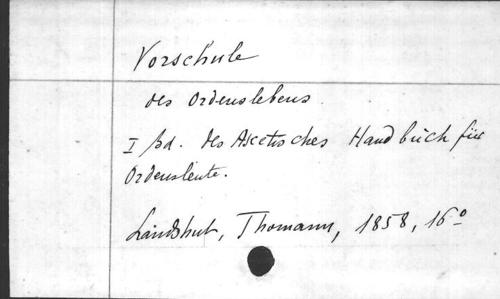 Vorschule
des Ordenslebens.
I Bd. des Ascetisches Handbuch für
Ordensleute.
Landshut, Thomann, 1858, 16°